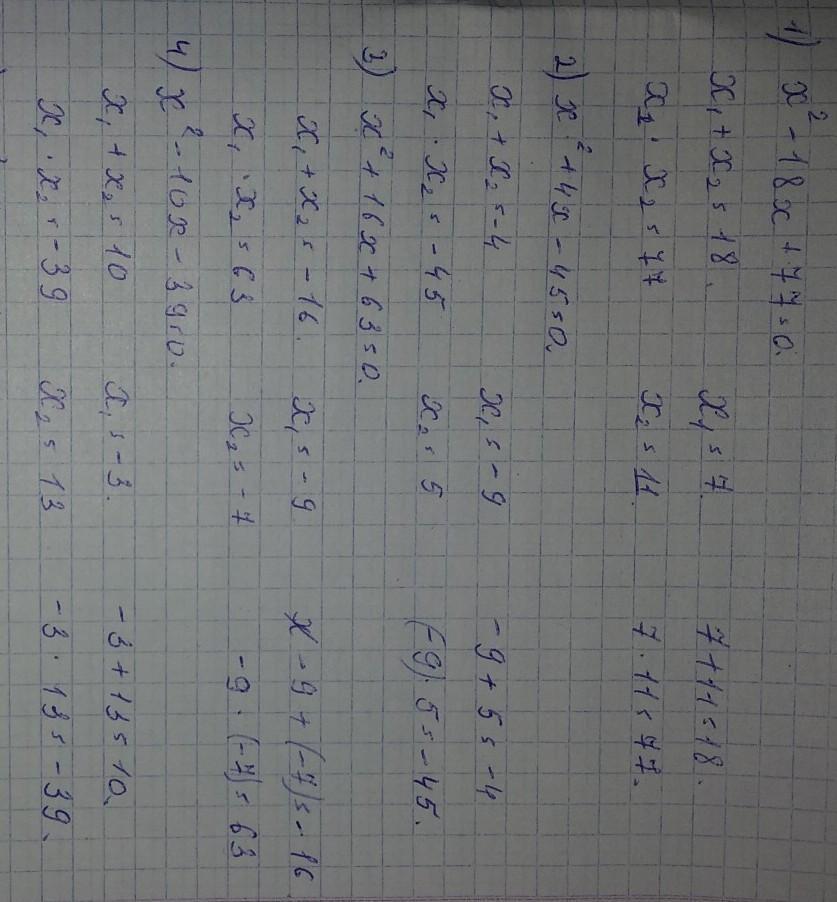 1) x² - 18x + 77 = 0.
x₁ + x₂ = 18. x₁ = 7. 7 + 11 = 18.
x₁ · x₂ = 77 x₂ = 11. 7 · 11 = 77.
2) x² + 4x - 45 = 0.
x₁ + x₂ = -4 x₁ = -9 -9 + 5 = -4
x₁ · x₂ = -45 x₂ = 5 (-9) · 5 = -45.
3) x² + 16x + 63 = 0.
x₁ + x₂ = -16. x₁ = -9 -9 + (-7) = -16
x₁ · x₂ = 63 x₂ = -7 -9 · (-7) = 63
4) x² - 10x - 39 = 0.
x₁ + x₂ = 10 x₁ = -3. -3 + 13 = 10.
x₁ · x₂ = -39 x₂ = 13 -3 · 13 = -39.